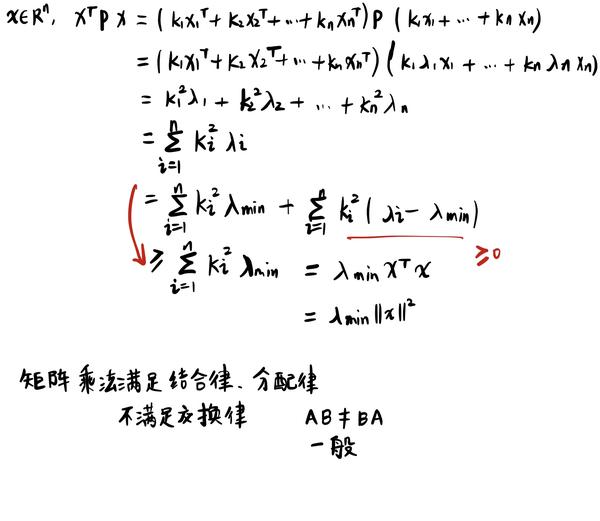 x∈Rⁿ, xᵀPx = (k₁x₁ᵀ + k₂x₂ᵀ + ⋯ + kₙxₙᵀ)P (k₁x₁ + ⋯ + kₙxₙ)
= (k₁x₁ᵀ + k₂x₂ᵀ + ⋯ + kₙxₙᵀ) (k₁λ₁x₁ + ⋯ + kₙλₙxₙ)
= k₁²λ₁ + k₂²λ₂ + ⋯ + kₙ²λₙ
= ∑ᵢ₌₁ⁿ kᵢ² λᵢ
= ∑ᵢ₌₁ⁿ kᵢ² λmin + ∑ᵢ₌₁ⁿ kᵢ² (λᵢ − λmin) ≥0
≥ ∑ᵢ₌₁ⁿ kᵢ² λmin = λmin xᵀx
= λmin ‖x‖²
矩阵乘法满足结合律、分配律
不满足交换律 AB≠BA
一般